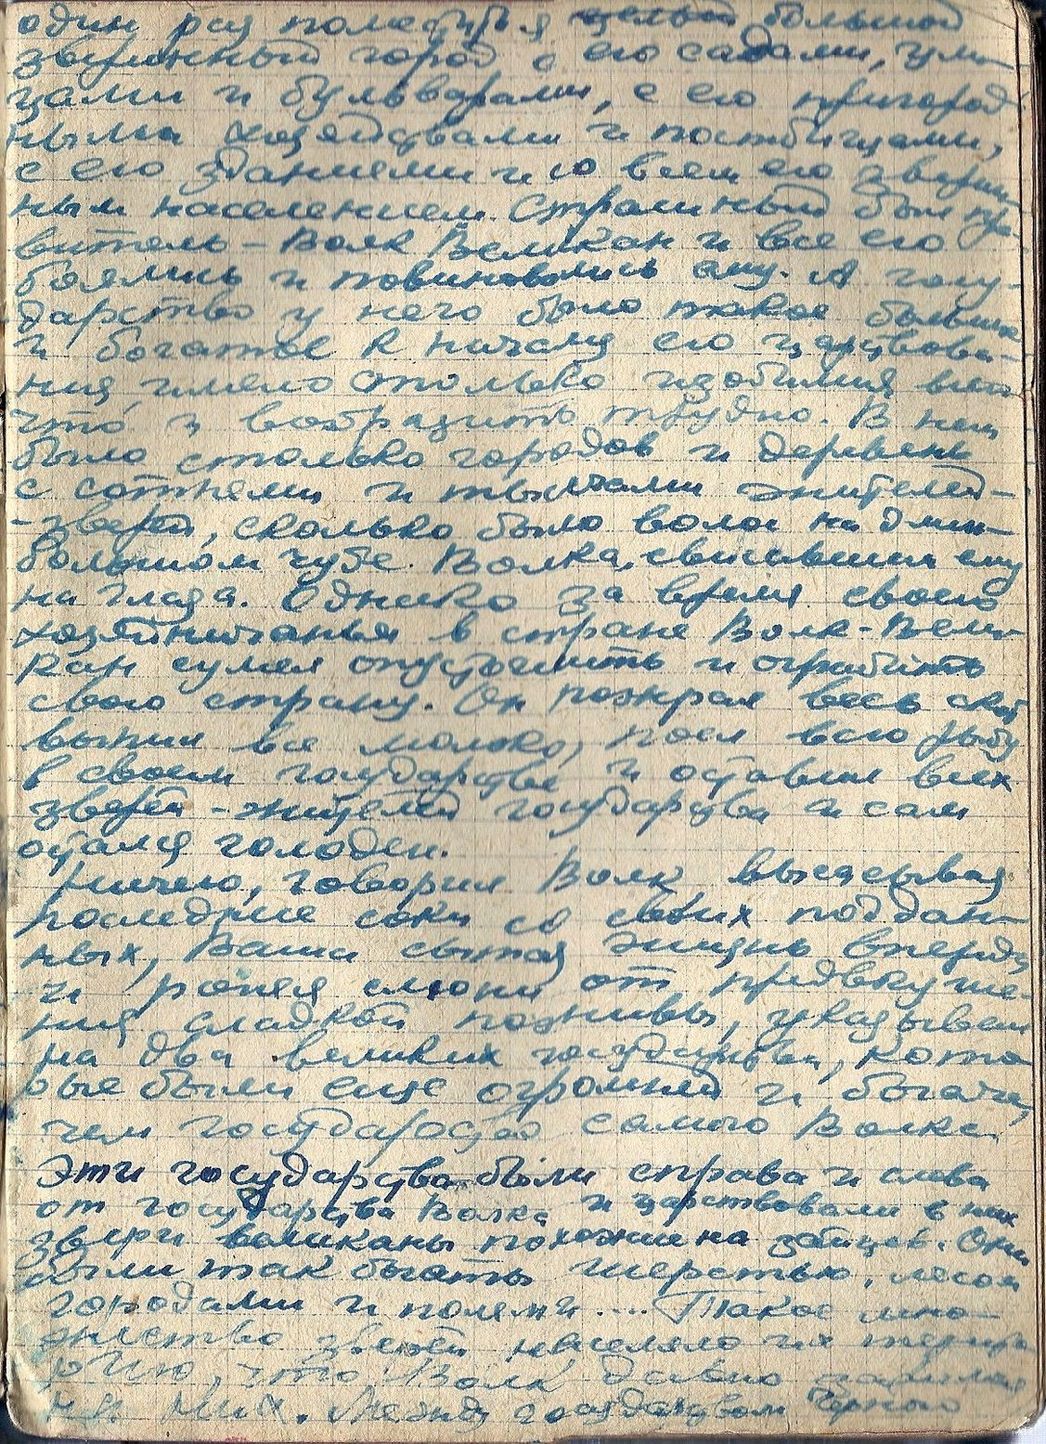 один раз поместился целый большой
звериный город с его садами, ули-
цами и бульварами, с его пригород
ными хозяйствами и пастбищами,
с его зданиями и со всем его звери
ным населением. Страшный был пра-
витель - Волк Великан и все его
боялись и повиновались ему. А госу-
дарство у него было такое большое
и богатое к началу его царствова-
ния, имело столько изобилия
что и вобразить трудно. В нем
было столько городов и деревень
с сотнями и тысячами жителей-
-зверей, сколько было волос на
большом чубе Волка, свисавшем ему
на глаза. Однако за время своего
хозяйничанья в стране Волк-Вели-
кан сумел опустошить и ограбить
свою страну. Он пожрал весь скот
выпил все молоко, поел всю рыбу
в своем государстве и оставил всех
зверей-жителей государства и сам
остался голоден.
Ничего, говорил Волк, высасывая
последние соки со своих поддан-
ных, Ваша сытая жизнь впереди
и роняя слюни от предвкуше-
ния сладкой поживы, указывал
на два великих государства, кото
рые были еще огромней и богаче,
чем государство самого Волка.
Эти государства были справа и слева
от государства Волка и царствовали в них
звери великаны похожие на зайцев. Они
были так богаты шерстью, лесом
городами и полями.... Такое мно-
жество зверей населяло их терри
рию, что Волк давно зарился
на них. Между государством Черный